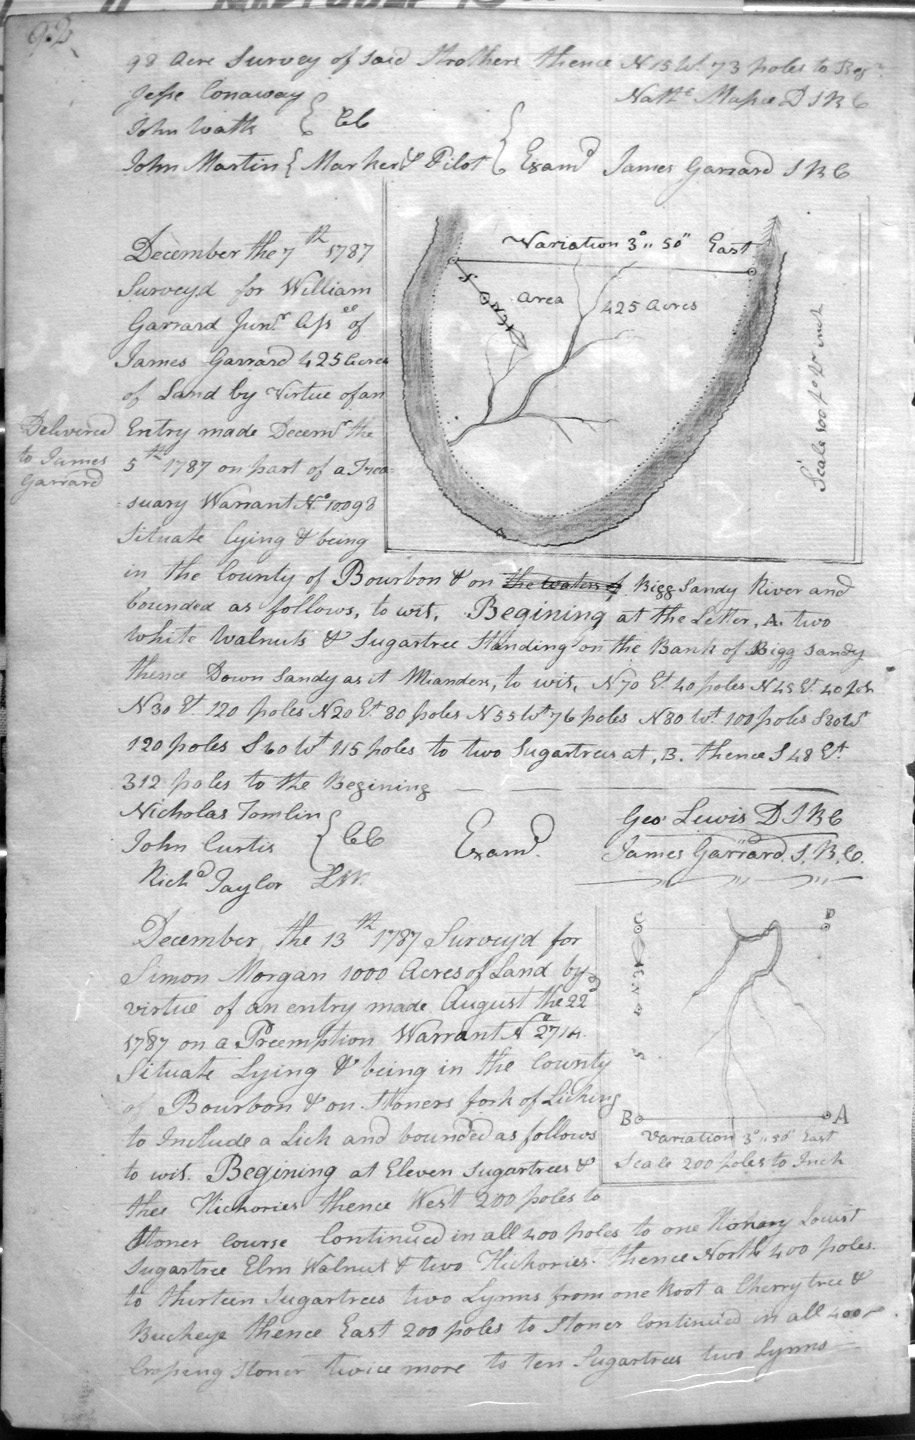 92
98 Acre Survey of said Strothers thence N 15 Wt 73 poles to Beg.
Jesse Conaway
John Wath } CC
John Martin { Marker & Pilot } Examd James Garrard S B C
D S B C
December the 7th 1787
Surveyd for William
Garrard Junr Assee of
James Garrard 425 Acres
of Land by Virtue of an
Entry made Decemr the
5th 1787 on part of a Trea-
suary Warrant No 10093
Situate lying & being
Delivered
to James
Garrard
Variation 3°,, 50" East
Area 425 Acres
Scale 100 po pr inch
in the County of Bourbon & on the waters of Bigg Sandy River and
bounded as follows, to wit, Begining at the Letter, A. two
white Walnuts & Sugartree Standing on the Bank of Bigg Sandy
thence Down Sandy as it Meanders, to wit, N 70 Et 40 poles N 45 Et 40 pols
N 30 Et 120 poles N 20 Et 80 poles N 55 Wt 76 poles N 80 Wt 100 poles S 80 Wt
120 poles S 60 Wt 115 poles to two Sugartrees at, B. thence S 48 Et
312 poles to the Begining
Nicholas Tomlin
John Curtis } CC Examd.
Richd Taylor
Geo. Lewis D S B C
James Garrard. S. B. C.
December, the 13th 1787 Surveyd for
Simon Morgan 1000 Acres of Land by
virtue of an entry made August the 22d
1787 on a Preemption Warrant No 2714.
Situate Lying & being in the County
of Bourbon & on Stoners fork of Licking
to Include a Lick and bounded as follows
to wit. Begining at Eleven Sugartrees &
thee Hickories thence West 200 poles to
C D
B A
Variation 3°,, 50" East
Scale 200 poles to Inch
Stoner course Continued in all 400 poles to one Locust
Sugartree Elm Walnut & two Hickories. thence North 400 poles.
to thirteen Sugartrees two Lynns from one Root a Cherry tree &
Buckeye thence East 200 poles to Stoner Continued in all 400
Crossing Stoner twice more to ten Sugartrees two Lynns